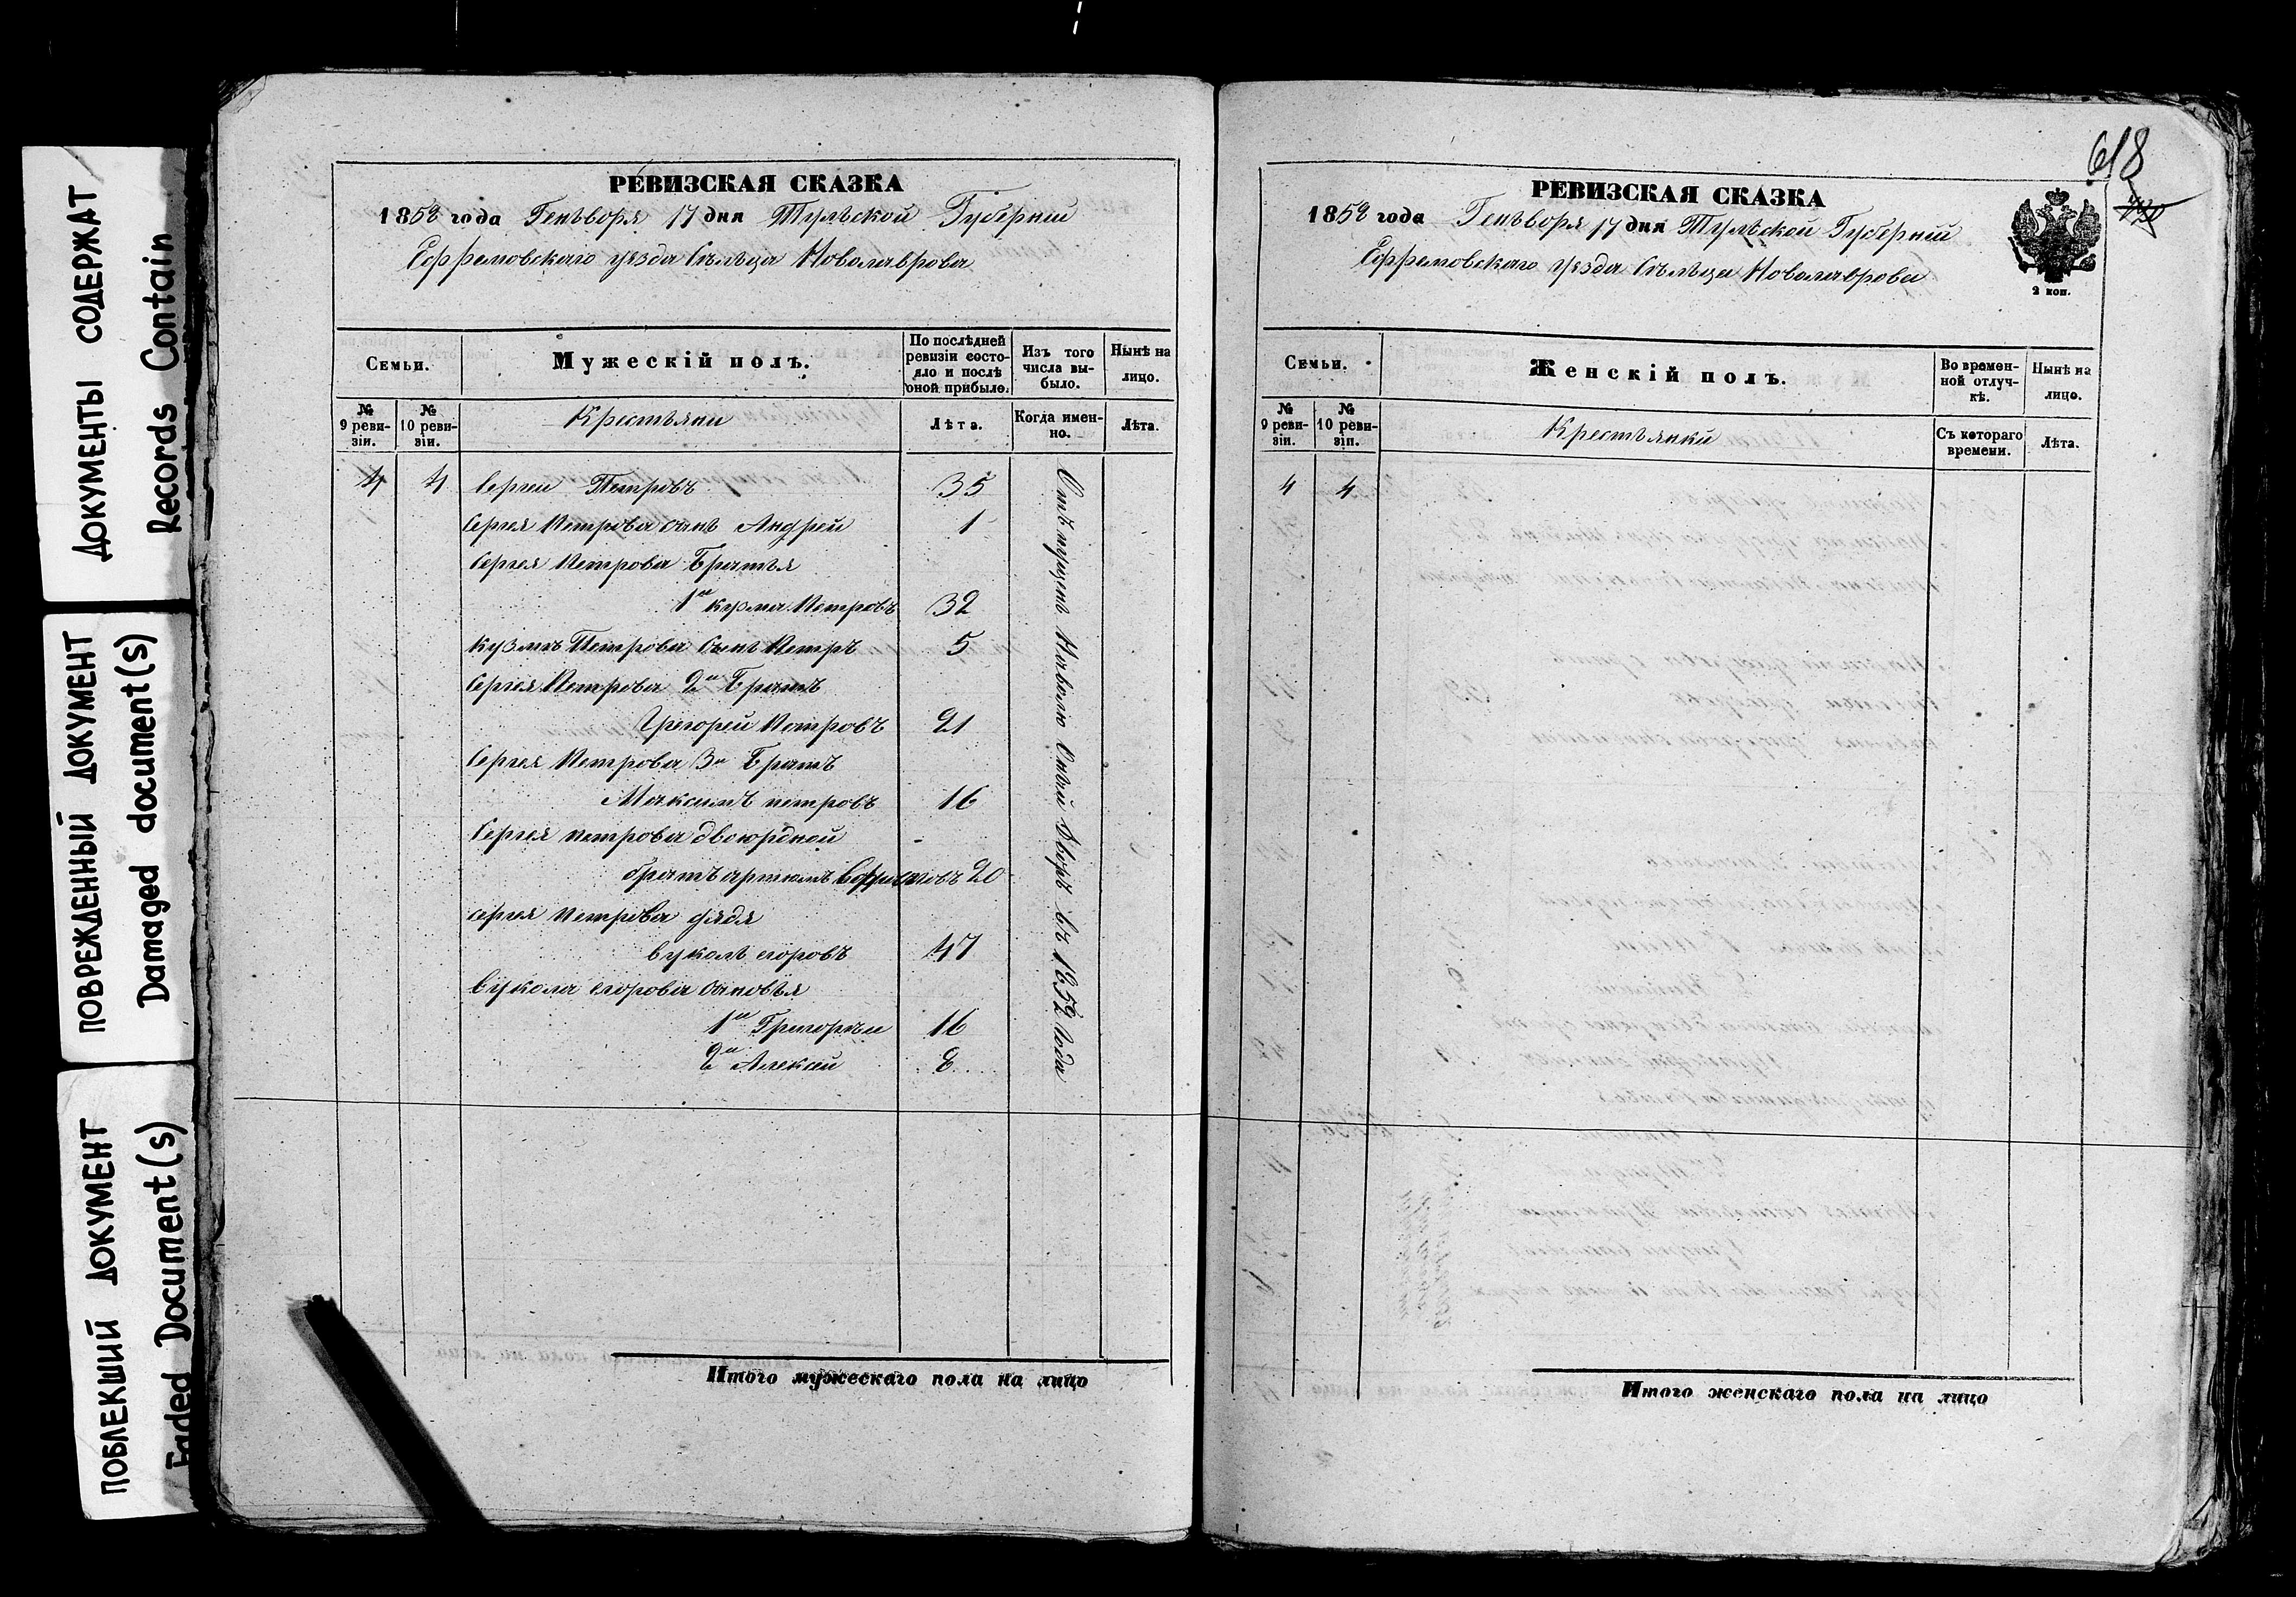 ДОКУМЕНТЫ СОДЕРЖАТ
Records Contain
ПОВРЕЖДЕННЫЙ ДОКУМЕНТ
Damaged document(s)
ПОБЛЕКШИЙ ДОКУМЕНТ
Faded Document(s)
РЕВИЗСКАЯ СКАЗКА
1858 года Генъворя 17 дня Тулъской Губерніи
Ефремовскаго уезда Сельца Новолаврова
Семьи.
Мужескій полъ.
По послѣдней ревизіи состояло и послѣ оной прибыло.
Изъ того числа выбыло.
Нынѣ на лицо.
№ 9 ревизіи.
№ 10 ревизіи.
Крестьяни
Лѣта.
Когда именно.
Лѣта.
4 4 Сергеи Петровъ 35
Сергея Петрова сынъ Андрей 1
Сергея Петрова Братья
1й кузма Петровъ 32
кузмы Петрова Сынъ Петръ 5
Сергея Петрова 2й Братъ
Грегорей Петровъ 21
Сергея Петрова 3й Братъ
Максимъ петровъ 16
Сергея петрова двоюрдной
братъ артемъ 20
сергея Петрова дядя
вуколъ егоровъ 47
вукола егорова сыновья
1й Григореи 16
2й Алексей 8
Отъ пущенъ На волю въ 1852 Года
Итого мужескаго пола на лицо
618
РЕВИЗСКАЯ СКАЗКА
1858 года Генъворя 17 дня Тулъской Губерніи
Ефремовскаго уезда Сельца Новолаврова
2 коп.
Семьи.
Женскій полъ.
Во временной отлучкѣ.
Нынѣ на лицо.
№ 9 ревизіи.
№ 10 ревизіи.
Крестьянки
Съ котораго времени.
Лѣта.
4 4
Итого женскаго пола на лицо